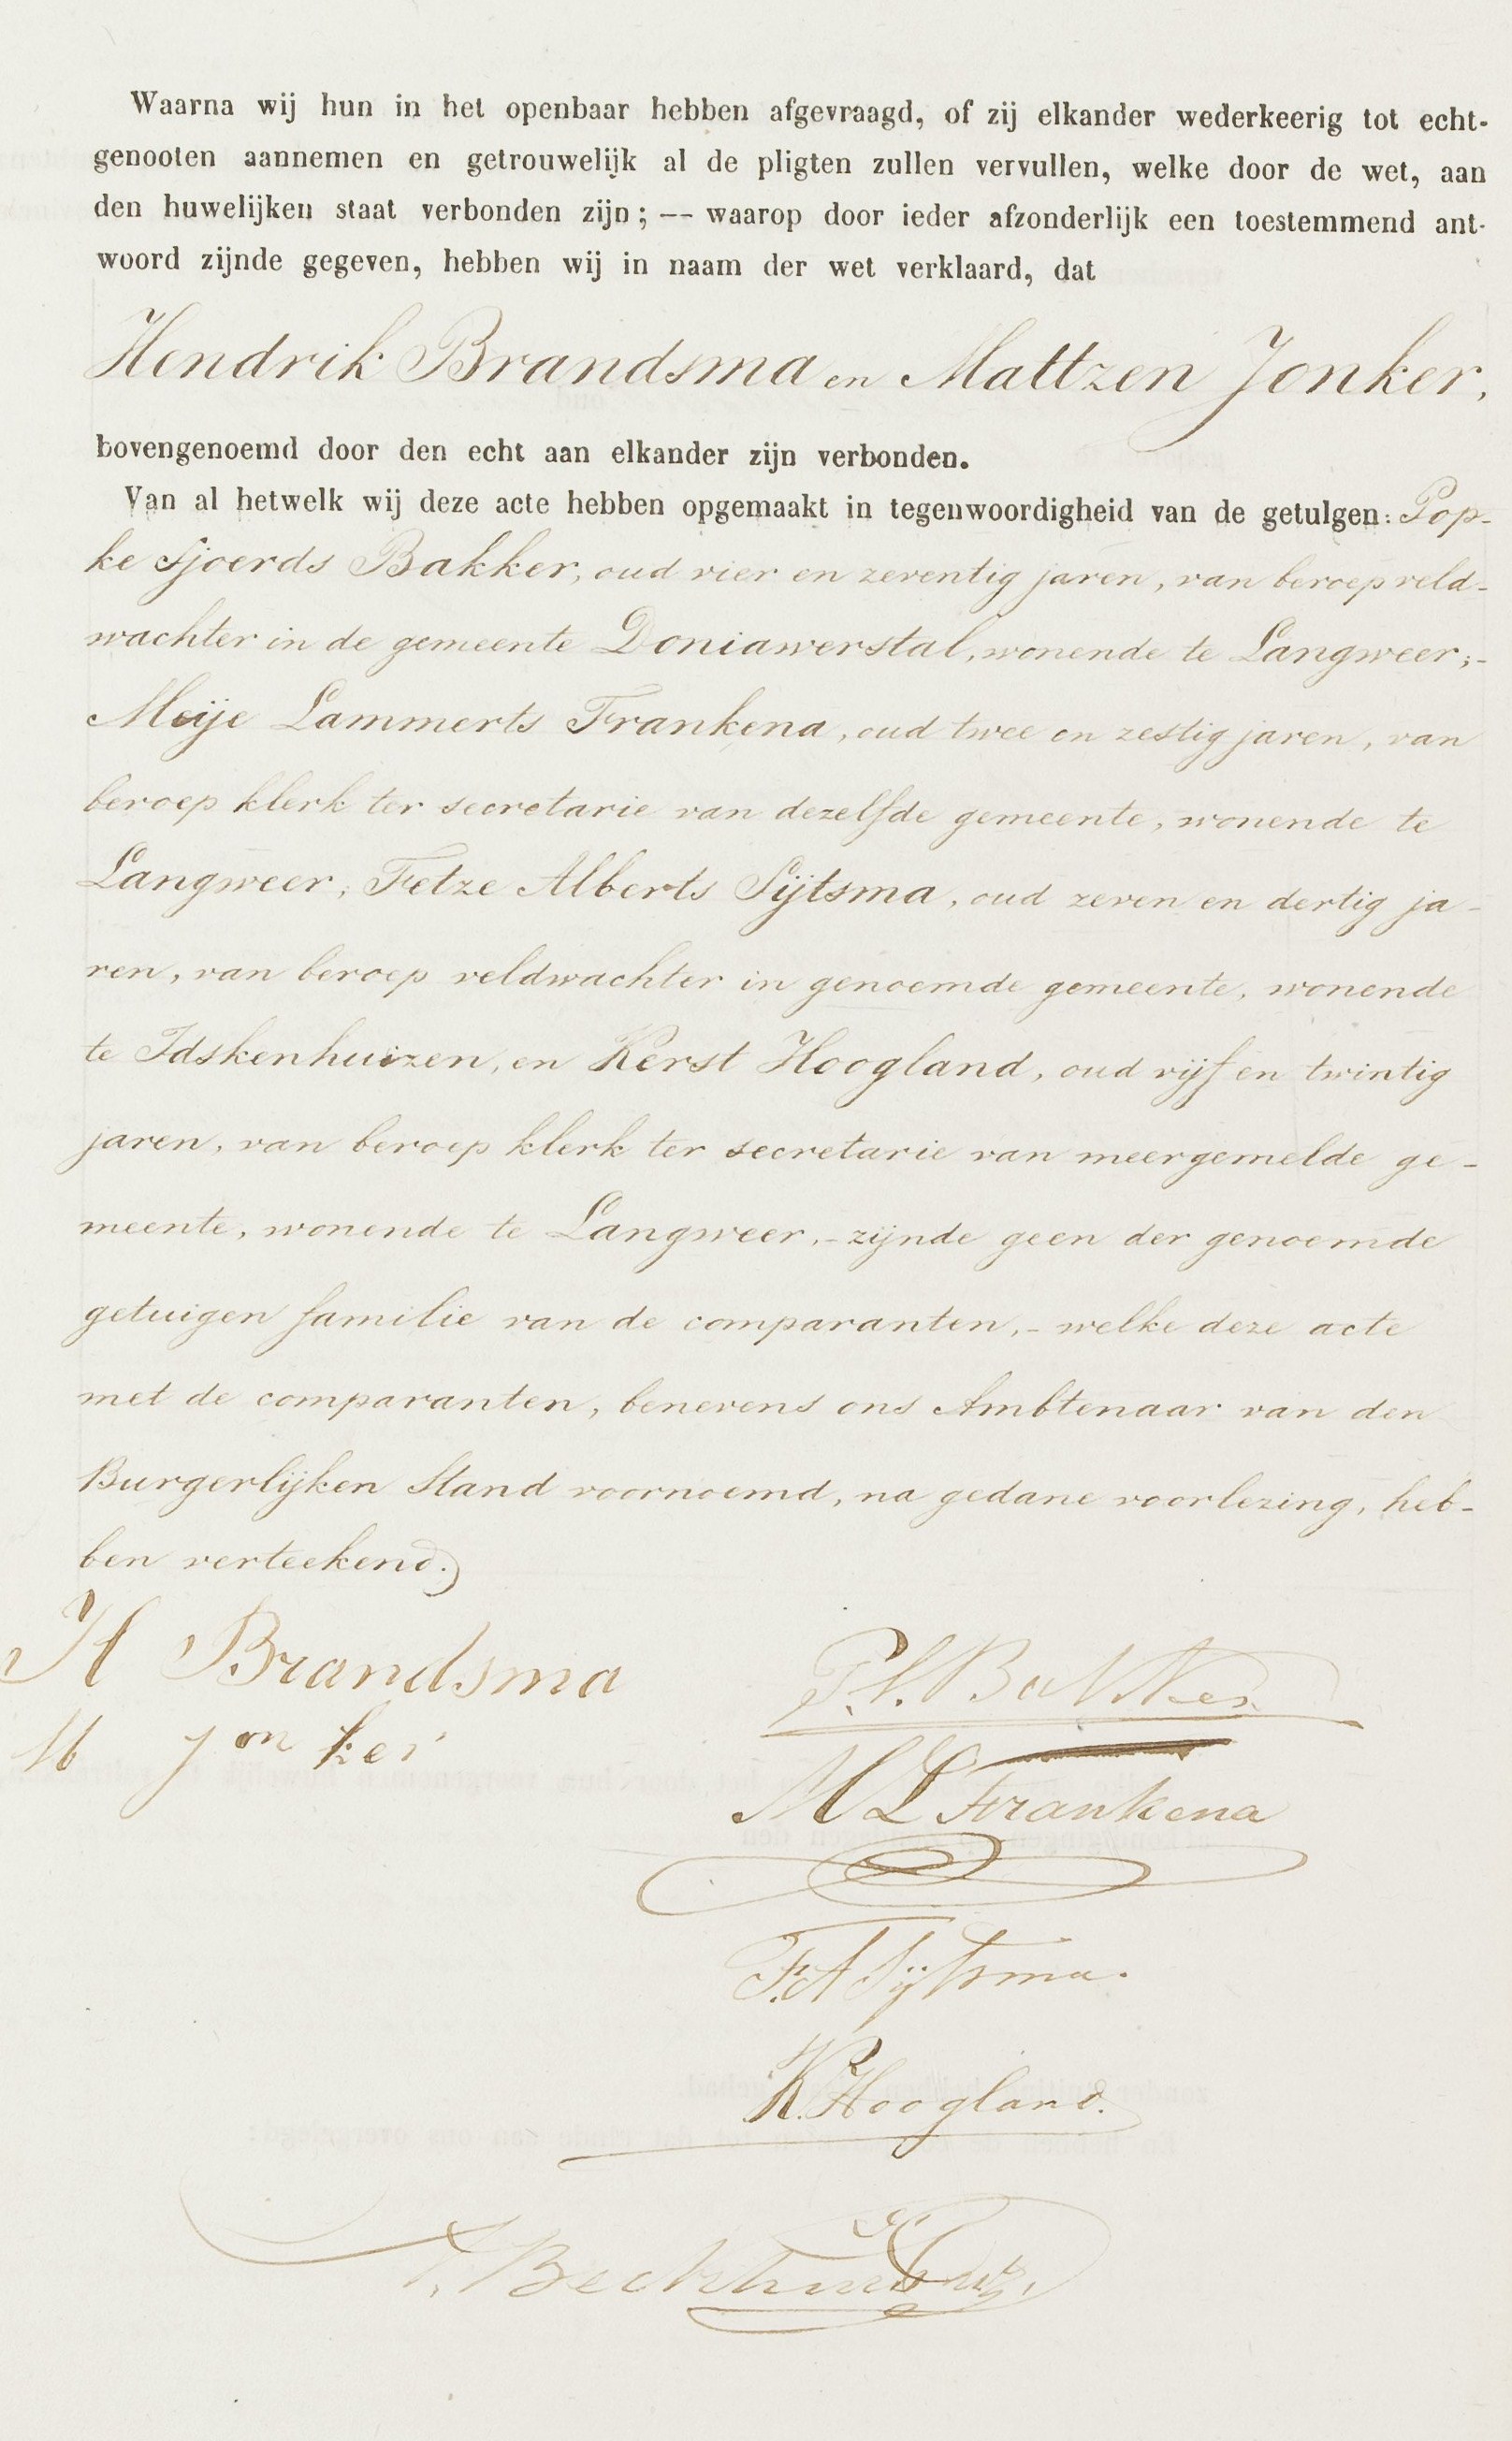 Waarna wij hun in het openbaar hebben afgevraagd, of zij elkander wederkeerig tot echt-
genooten aannemen en getrouwelijk al de pligten zullen vervullen, welke door de wet, aan
den huwelijken staat verbonden zijn; — waarop door ieder afzonderlijk een toestemmend ant-
woord zijnde gegeven, hebben wij in naam der wet verklaard, dat
Hendrik Brandsma en Mattzen Jonker,
bovengenoemd door den echt aan elkander zijn verbonden.
Van al hetwelk wij deze acte hebben opgemaakt in tegenwoordigheid van de getuigen: Pop-
ke Sjoerds Bakker, oud vier en zeventig jaren, van beroep veld-
wachter in de gemeente Doniawerstal, wonende te Langweer;-
Meije Lammerts Frankena, oud twee en zestig jaren, van
beroep klerk ter secretarie van dezelfde gemeente, wonende te
Langweer; Fetze Alberts Sijtsma, oud zeven en dertig ja-
ren, van beroep veldwachter in genoemde gemeente, wonende
te Idskenhuizen, en Kerst Hoogland, oud vijf en twintig
jaren, van beroep klerk ter secretarie van meergemelde ge-
meente, wonende te Langweer,- zijnde geen der genoemde
getuigen familie van de comparanten,- welke deze acte
met de comparanten, benevens ons Ambtenaar van den
Burgerlijken Stand voornoemd, na gedane voorlezing, heb-
ben verteekend.
H Brandsma
M Jonker
P.S. Bakker
M L Frankena
F.A Sijtsma.
K. Hoogland.